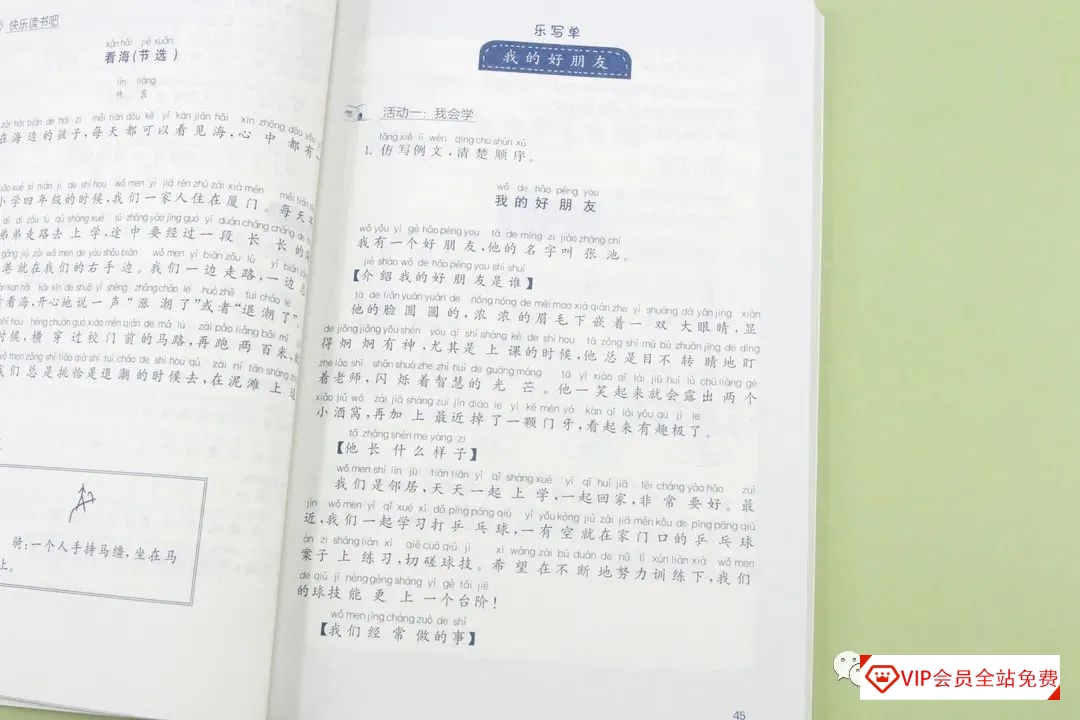 快乐读书吧
kàn hǎi jié xuǎn
看海(节选)
lín liáng
林 良
在海边的孩子,每天都可以看见海,心中都有一
小学四年级的时候,我们一家人住在厦门。每天早
弟弟走路去上学,途中要经过一段长长的
港就在我们的右手边。我们一边走路,一边
看海,开心地说一声“涨潮了”或者“退潮了”。
时候,横穿过校门前的马路,再跑两百米,
我们总是挑恰是退潮的时候去,在泥滩上
骑:一个人手持马缰,坐在马
上。
乐写单
我的好朋友
活动一:我会学
1. 仿写例文,清楚顺序。
wǒ de hǎo péng you
我的好朋友
wǒ yǒu yí gè hǎo péng you tā de míng zi jiào zhāng chí
我有一个好朋友,他的名字叫张池。
jiè shào wǒ de hǎo péng you shì shuí
【介绍我的好朋友是谁】
tā de liǎn yuán yuán de nóng nóng de méi mao xià qiàn zhe yì shuāng dà yǎn jing xiǎn
他的脸圆圆的,浓浓的眉毛下嵌着一双大眼睛,显
de jiǒng jiǒng yǒu shén yóu qí shì shàng kè de shí hou tā zǒng shì mù bù zhuǎn jīng de dīng
得炯炯有神,尤其是上课的时候,他总是目不转睛地盯
zhe lǎo shī shǎn shuò zhe zhì huì de guāng máng tā yí xiào qǐ lái jiù huì lù chū liǎng gè
着老师,闪烁着智慧的光芒。他一笑起来就会露出两个
xiǎo jiǔ wō zài jiā shàng zuì jìn diào le yì kē mén yá kàn qǐ lái yǒu qù jí le
小酒窝,再加上最近掉了一颗门牙,看起来有趣极了。
tā zhǎng shén me yàng zi
【他长什么样子】
wǒ men shì lín jū tiān tiān yì qǐ shàng xué yì qǐ huí jiā fēi cháng yào hǎo zuì
我们是邻居,天天一起上学,一起回家,非常要好。最
jìn wǒ men yì qǐ xué xí dǎ pīng pāng qiú yì yǒu kòng jiù zài jiā mén kǒu de pīng pāng qiú
近,我们一起学习打乒乓球,一有空就在家门口的乒乓球
àn zi shàng liàn xí qiē cuō qiú jì xī wàng zài bú duàn de nǔ lì xùn liàn xià wǒ men
案子上练习,切磋球技。希望在不断地努力训练下,我们
de qiú jì néng gèng shàng yí gè tái jiē
的球技能更上一个台阶!
wǒ men jīng cháng zuò de shì
【我们经常做的事】
45
VIP会员全站免费